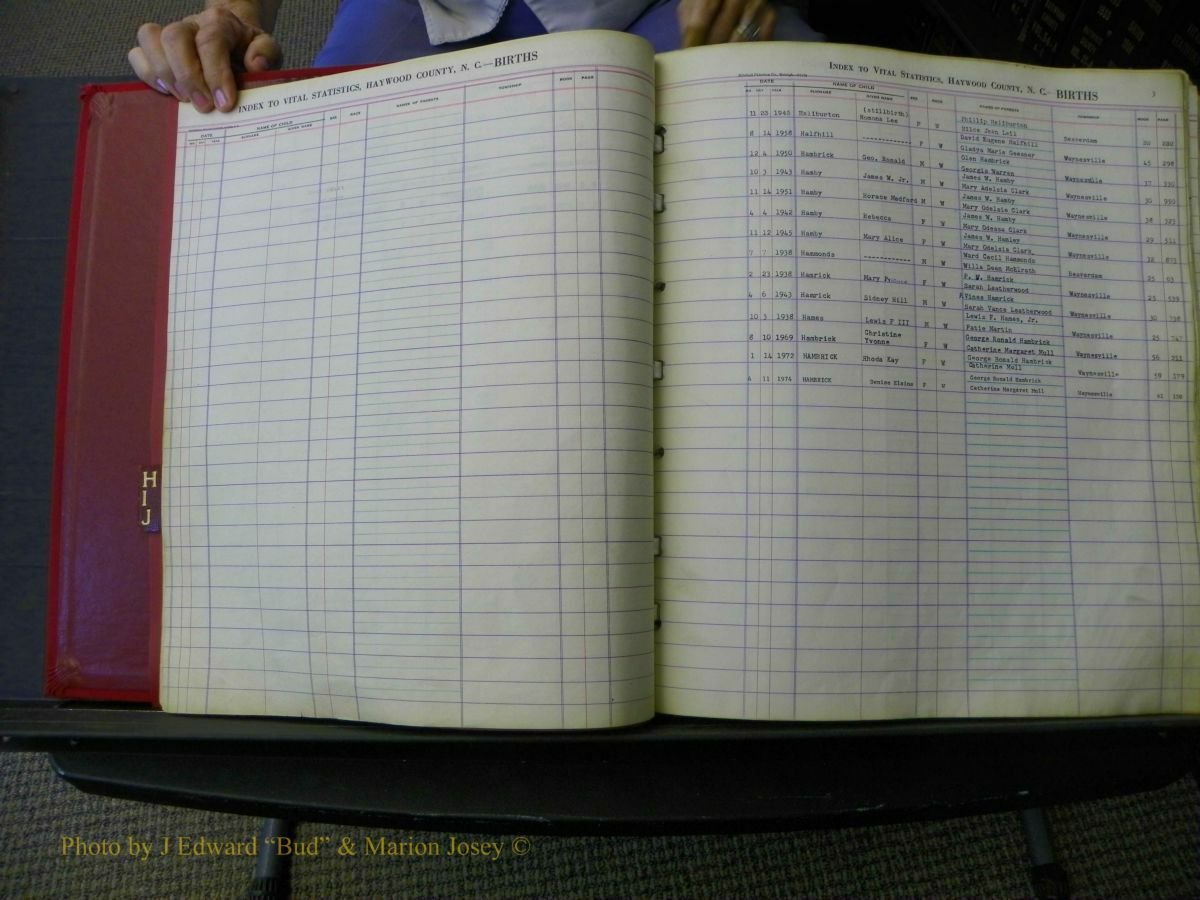 INDEX TO VITAL STATISTICS, HAYWOOD COUNTY, N. C.—BIRTHS
DATE NAME OF CHILD SEX RACE NAMES OF PARENTS TOWNSHIP BOOK PAGE
SURNAME GIVEN NAME
H
I
J
INDEX TO VITAL STATISTICS, HAYWOOD COUNTY, N. C.—BIRTHS 3
DATE NAME OF CHILD SEX RACE NAMES OF PARENTS TOWNSHIP BOOK PAGE
MO. DAY YEAR SURNAME GIVEN NAME
(stillbirth) Phillip Haliburton
11 23 Haliburton Lee F W Beaverdam
8 14 1958 Halfhill ----------- F W David Eugene Halfhill Waynesville 45 298
Gladys Marie Gessner
12 4 1950 Hambrick Geo. Ronald M W Glen Hambrick Waynesville 37
Georgia Warren
10 3 1943 Hamby James W. Jr. M W James W. Hamby Waynesville 30 950
Mary Adelsia Clark
11 14 1951 Hamby Horace Medford M W James W. Hamby Waynesville 38 325
Mary Odelsie Clark
4 4 1942 Hamby Rebecca F W James W. Hamby Waynesville 29 511
Mary Odessa Clark
11 12 1945 Hamby Mary Alice F W James W. Waynesville 32 873
Mary Odelsia Clark
7 7 1938 Hammonds ----------- M W Ward Cecil Hammonds Beaverdam 25 63
Willa Dean McElrath
2 23 1938 Hamrick Mary F W F. W. Hamrick Waynesville 25 539
Sarah Leatherwood
4 6 1943 Hamrick Sidney Hill M W Vines Hamrick Waynesville 30 798
Sarah Vance Leatherwood
10 3 1938 Hames Lewis F III M W Lewis F. Hames, Jr. Waynesville 25 747
Patie Martin
8 10 1969 Hambrick Christine Yvonne F W George Ronald Hambrick Waynesville 56 253
Catherine Margaret Moll
1 14 1972 HAMBRICK Rhoda Kay F W George Ronald Hambrick Waynesville 59 179
Catherine Moll
4 11 1974 HAMBRICK Denise Elaine F W George Ronald Hambrick Waynesville 61 158
Catherine Margaret Moll
Photo by J Edward “Bud” & Marion Josey ©